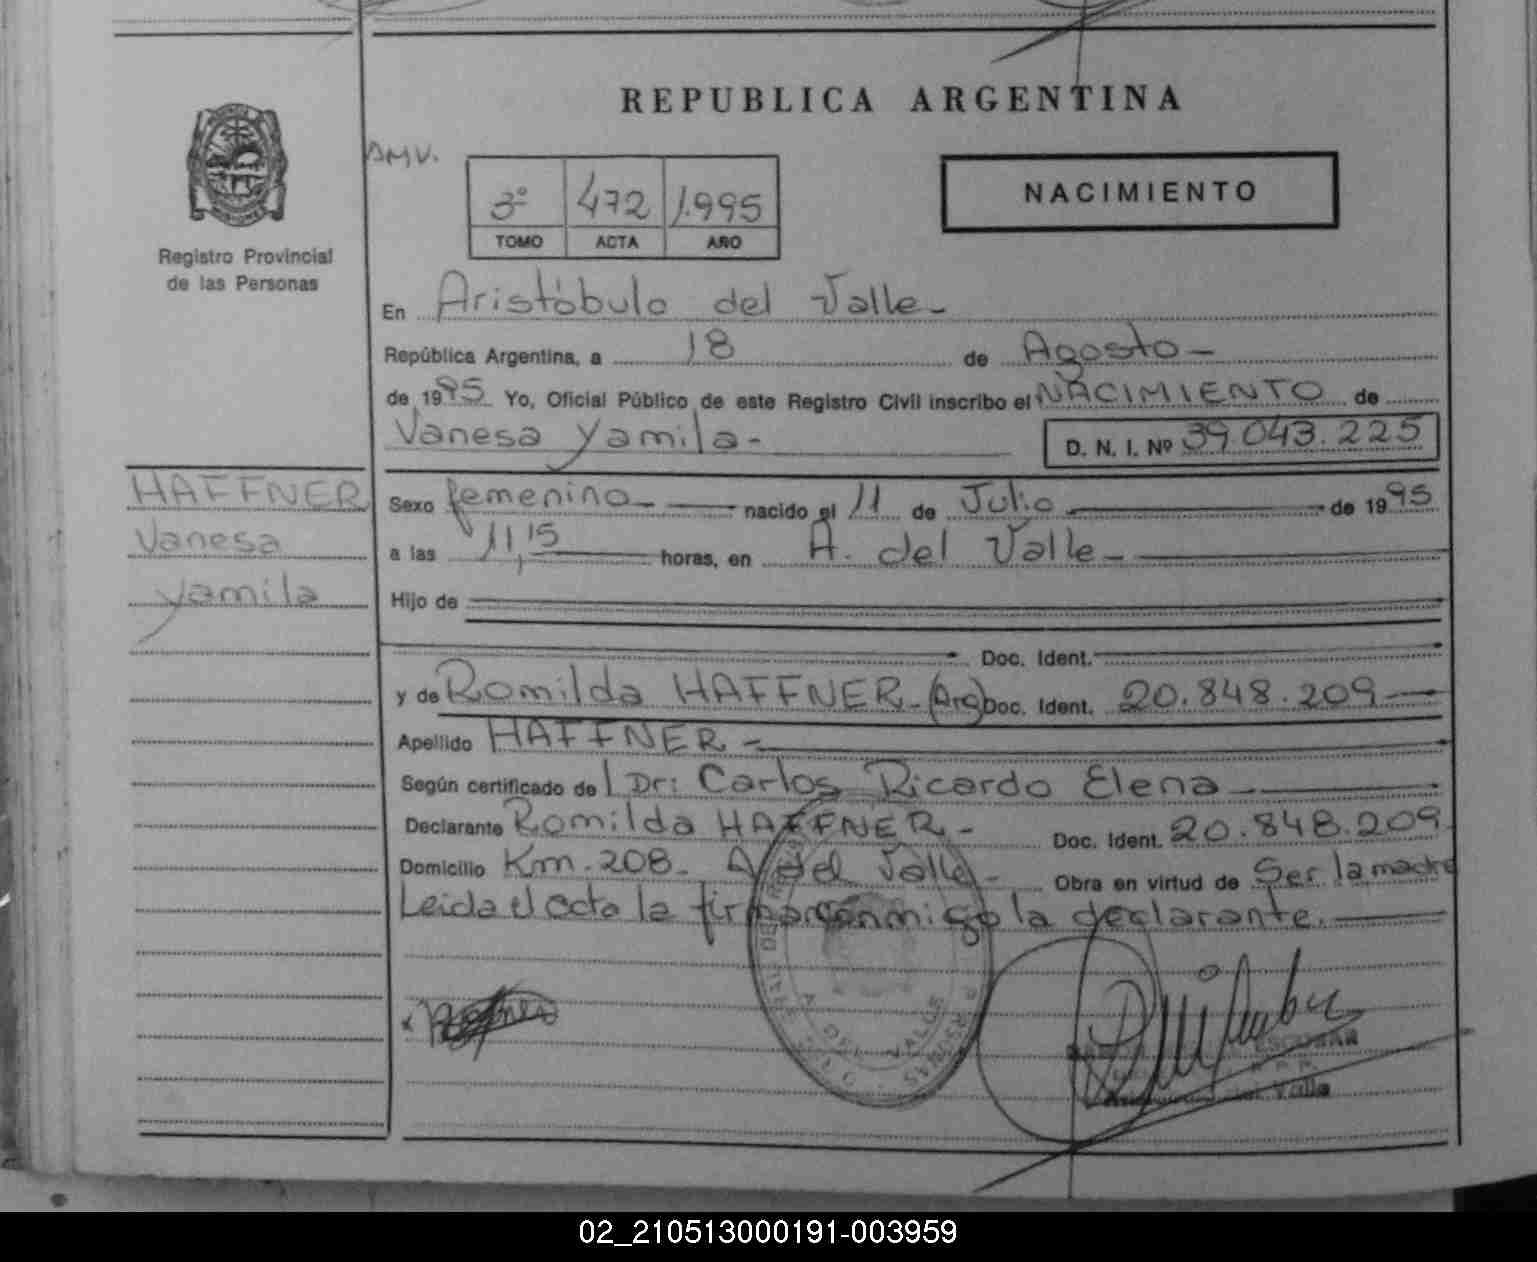 REPUBLICA ARGENTINA
AMV.
3º 472 1.995
TOMO ACTA AÑO
NACIMIENTO
Registro Provincial
de las Personas
En Aristóbulo del Valle-
República Argentina, a 18 de Agosto-
de 1995 Yo, Oficial Público de este Registro Civil inscribo el NACIMIENTO de
Vanesa Yamila- D. N. I. Nº 39.043.225
HAFFNER
Vanesa
Yamila
Sexo femenino- nacido el 11 de Julio de 1995
a las 11,15 horas, en A. del Valle-
Hijo de
Doc. Ident.
y de Romilda HAFFNER-(Arg) Doc. Ident. 20.848.209
Apellido HAFFNER-
Según certificado de l Dr: Carlos Ricardo Elena
Declarante Romilda HAFFNER- Doc. Ident. 20.848.209
Domicilio Km. 208- A. del Valle- Obra en virtud de Ser la madre
Leída el acta la firma conmigo la declarante.
A. DEL VALLE
ESCOBAR
del Valle
02_210513000191-003959